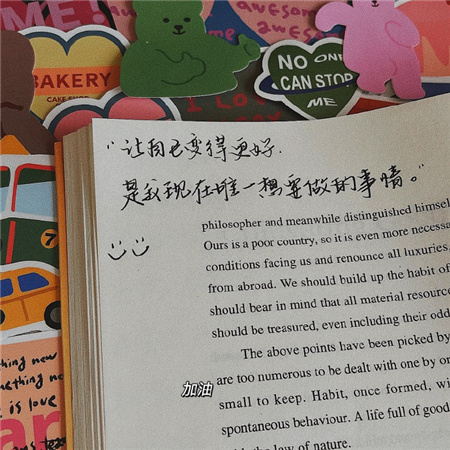 awesome
awesome
BAKERY
CAKE SHOP
NO ONE
CAN STOP
ME
I LOVE
“让自己变得更好，
是我现在唯一想要做的事情。”
philosopher and meanwhile distinguished himsel
Ours is a poor country, so it is even more necessa
conditions facing us and renounce all luxuries,
from abroad. We should build up the habit of
should bear in mind that all material resource
should be treasured, even including their odd
The above points have been picked by
are too numerous to be dealt with one by or
small to keep. Habit, once formed, wi
spontaneous behaviour. A life full of good
with the law of nature.
加油
7
thing new
mething new
is love